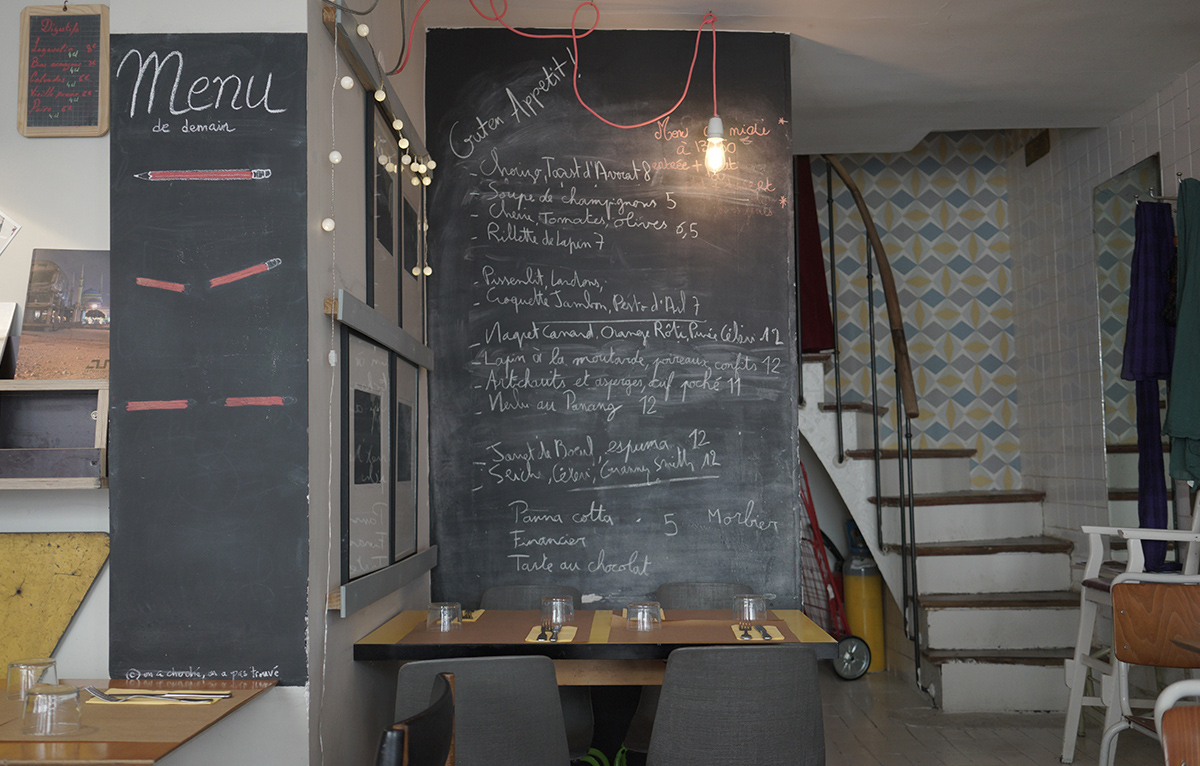 Digestifs
Menu
de demain
(c) on a cherché, on a pas trouvé
Guten Appetit!
midi
à
- Chorizo, Toast d'Avocat 8
- Soupe de champignons 5
- Chèvre Tomates, olives 6,5
- Rillette de Lapin 7
- Pissenlit, Lardons,
- Croquette Jambon, Pesto d'Ail 7
- Magret Canard, Orange Rôti, Purée Céleri 12
- Lapin à la moutarde, poireaux confits 12
- Artichauts et asperges, œuf poché 11
- Merlu au Panang 12
- Jarret de Boeuf, espuma 12
- Seiche, Céleri, Granny Smith 12
Panna cotta . 5 Morbier
Financier
Tarte au chocolat